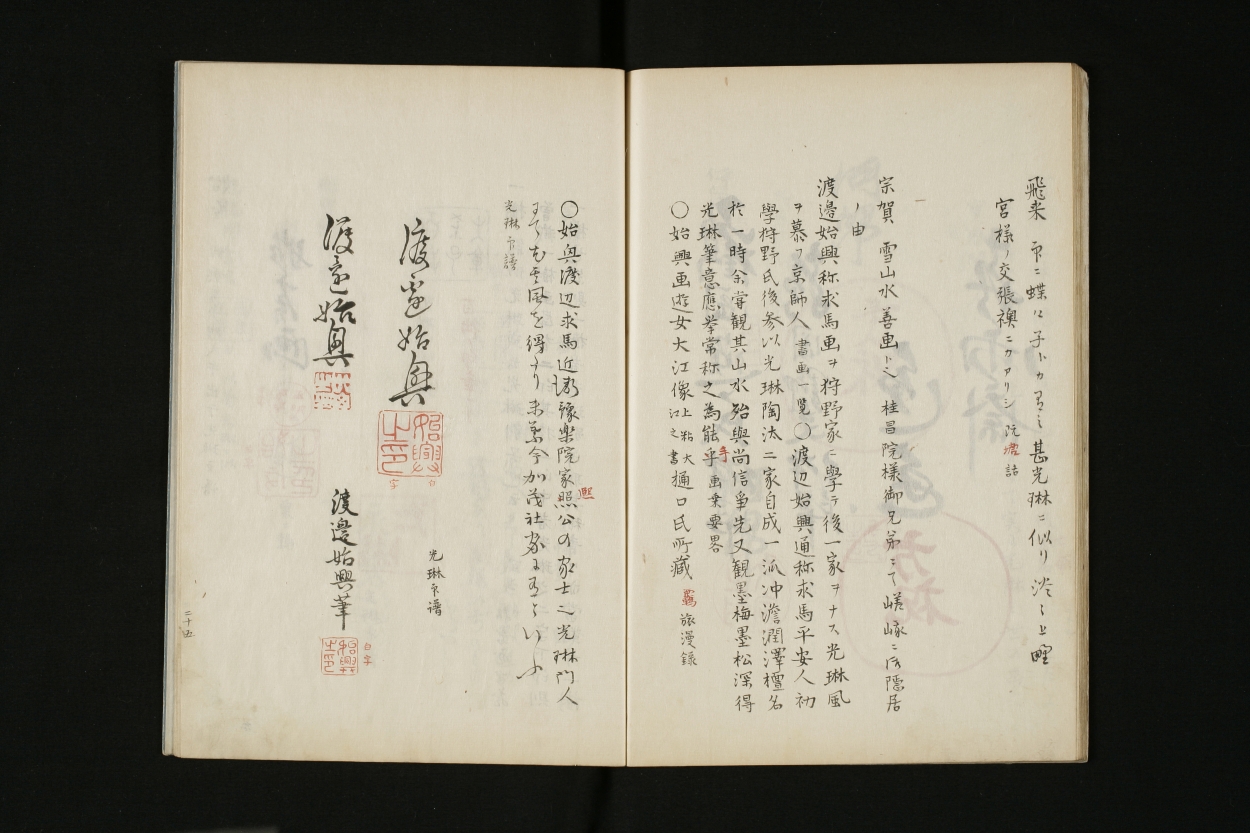 飛来 印ニ蝶は子トカ有之甚光琳ニ似リ 上野
宮様ノ交張襖ニカアリシ 阮塘話
一
宗賀 雪山水善画ト之 桂昌院様御兄弟ニて嵯峨ニ居隠居
ノ由
渡邉始興称求馬画ヲ狩野家ニ學テ後一家ヲナス光琳風
ヲ慕フ京師人 書画一覽 〇渡辺始興通称求馬平安人初
學狩野氏後参以光琳陶汰二家自成一派冲澹潤澤檀名
於一時余嘗観其山水殆與尚信爭先又観墨梅墨松深得
光琳筆意應挙常称之為能乎 手 画乗要畧
〇始興画遊女大江像 上粘大江之書 樋口氏所藏 羇旅漫録
〇始興渡辺求馬近衛豫楽院家熙公の家士之光琳門人
にて 其風を得たり 末葉今加茂社家に有といふ
光琳印譜
渡邉始興
始興之印
白字
渡邉始興
光琳印譜
渡邉始興筆
始興之印
白字
二十五